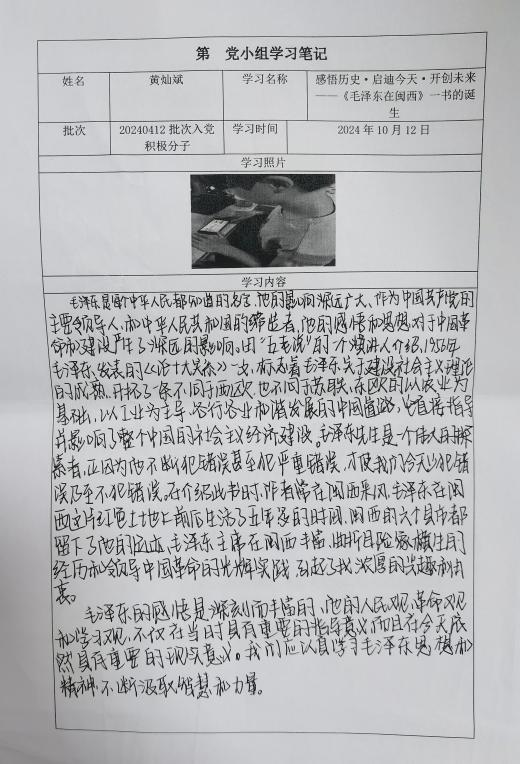 第 党小组学习笔记
姓名 黄灿斌 学习名称 感悟历史·启迪今天·开创未来
——《毛泽东在闽西》一书的诞
生
批次 20240412批次入党
积极分子 学习时间 2024年10月12日
学习照片
学习内容
毛泽东是每个中华人民都知道的名字,他的影响深远广大、作为中国共产党的
主要领导人,和中华人民共和国的缔造者,他的感悟和思想,对于中国革
命和建设产生了深远的影响。由“五老说”的一个演讲人介绍,1956年
毛泽东发表的《论十大关系》一文,标志着毛泽东关于建设社会主义理论
的成熟、开拓了一条不同于西欧,也不同于苏联、东欧的以农业为
基础,以工业为主导,各行各业和谐发展的中国道路,它直接指导
并影响了整个中国的社会主义经济建设。毛泽东先生是一个伟人的探
索者,正因为他不断犯错误甚至犯严重错误,才使我们今天少犯错
误乃至不犯错误。在介绍此书时,作者常在闽西采风,毛泽东在闽
西这片红色土地上前后生活了五年多的时间,闽西的六个县市都
留下了他的足迹,毛泽东主席在闽西丰富、曲折且险象横生的
经历和领导中国革命的光辉实践,引起了我浓厚的兴趣和由
衷。
毛泽东的感悟是深刻而丰富的,他的人民观,革命观
和学习观,不仅在当时具有重要的指导意义而且在今天依
然具有重要的现实意义。我们应认真学习毛泽东思想和
精神,不断汲取智慧和力量。